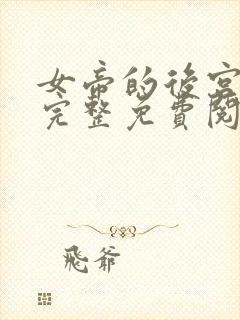 女帝的後宮
完整免費閱
飛爺